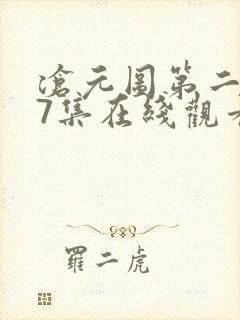 滄元圖第二
7集在綫觀看
羅二虎